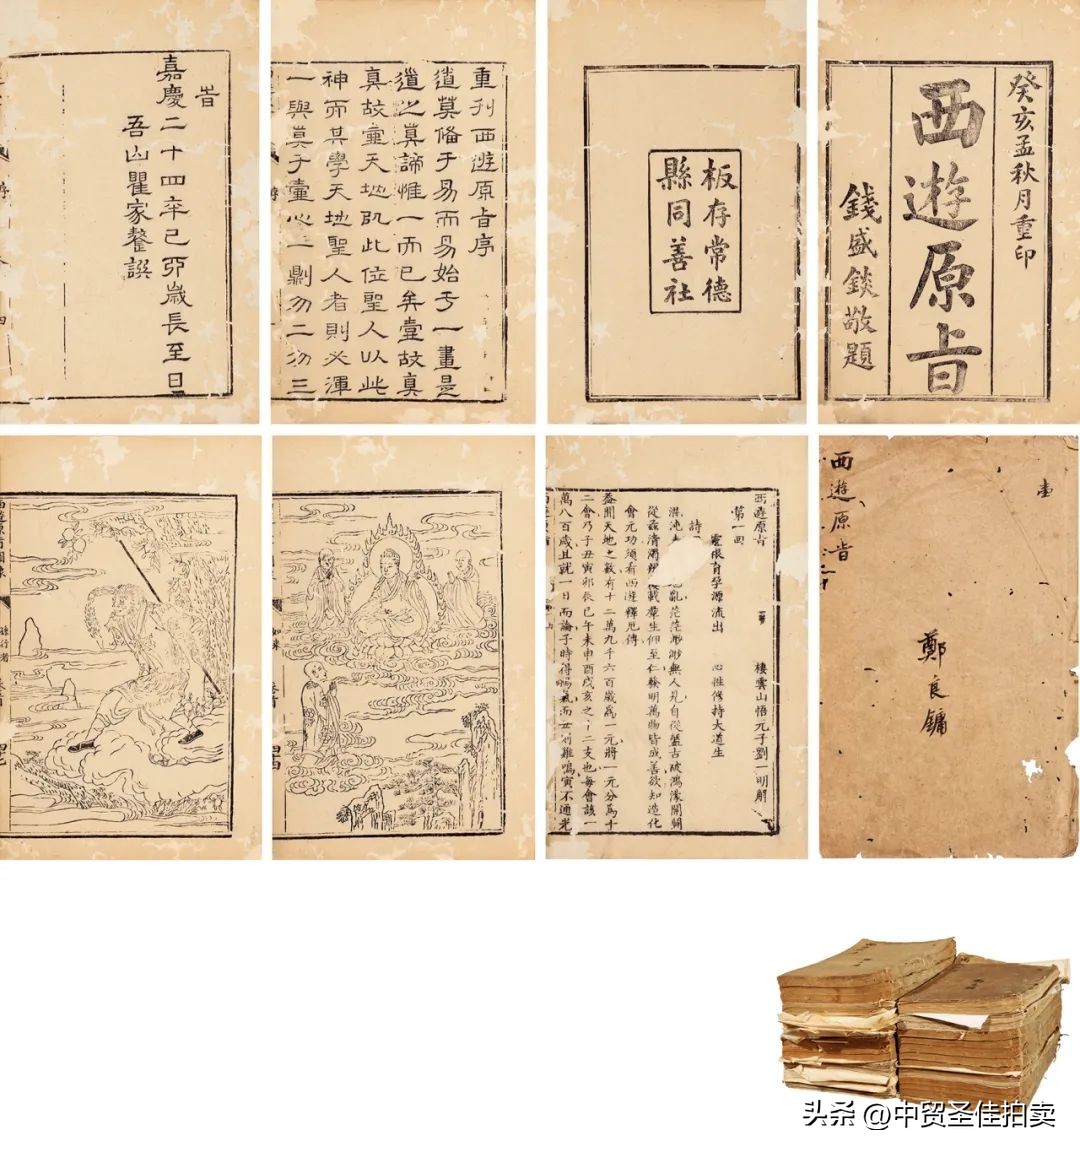 癸亥孟秋月重印
西遊原旨
錢盛錟敬題
板存常德
縣同善社
重刊西遊原旨序
道莫備于易而易始于一畫是
道之真諦惟一而已矣壹故真
真故靈天地以此位聖人以此
神而其學天地聖人者則必渾
一與莫于壹心一剸勿二勿三
旨
嘉慶二十四年己卯歲長至日
吾山瞿家鏊譔
西遊原旨
鄭良鏞
西遊原旨
棲雲山悟元子劉一明解
第一回
靈根育孕源流出 心性修持大道生
詩
混沌 亂茫茫渺渺無人見自從盤古破鴻濛開闢
從茲清濁辨 載羣生仰至仁發明萬物皆成善欲知造化
會元功須看西遊釋厄傳
蓋聞天地之數有十二萬九千六百歲為一元將一元分為十
二會乃子丑寅卯辰巳午未申酉戌亥之十二支也每會該一
萬八百歲且就一日而論子時得陽氣而丑則雞鳴寅不通光
头条 @中贸圣佳拍卖